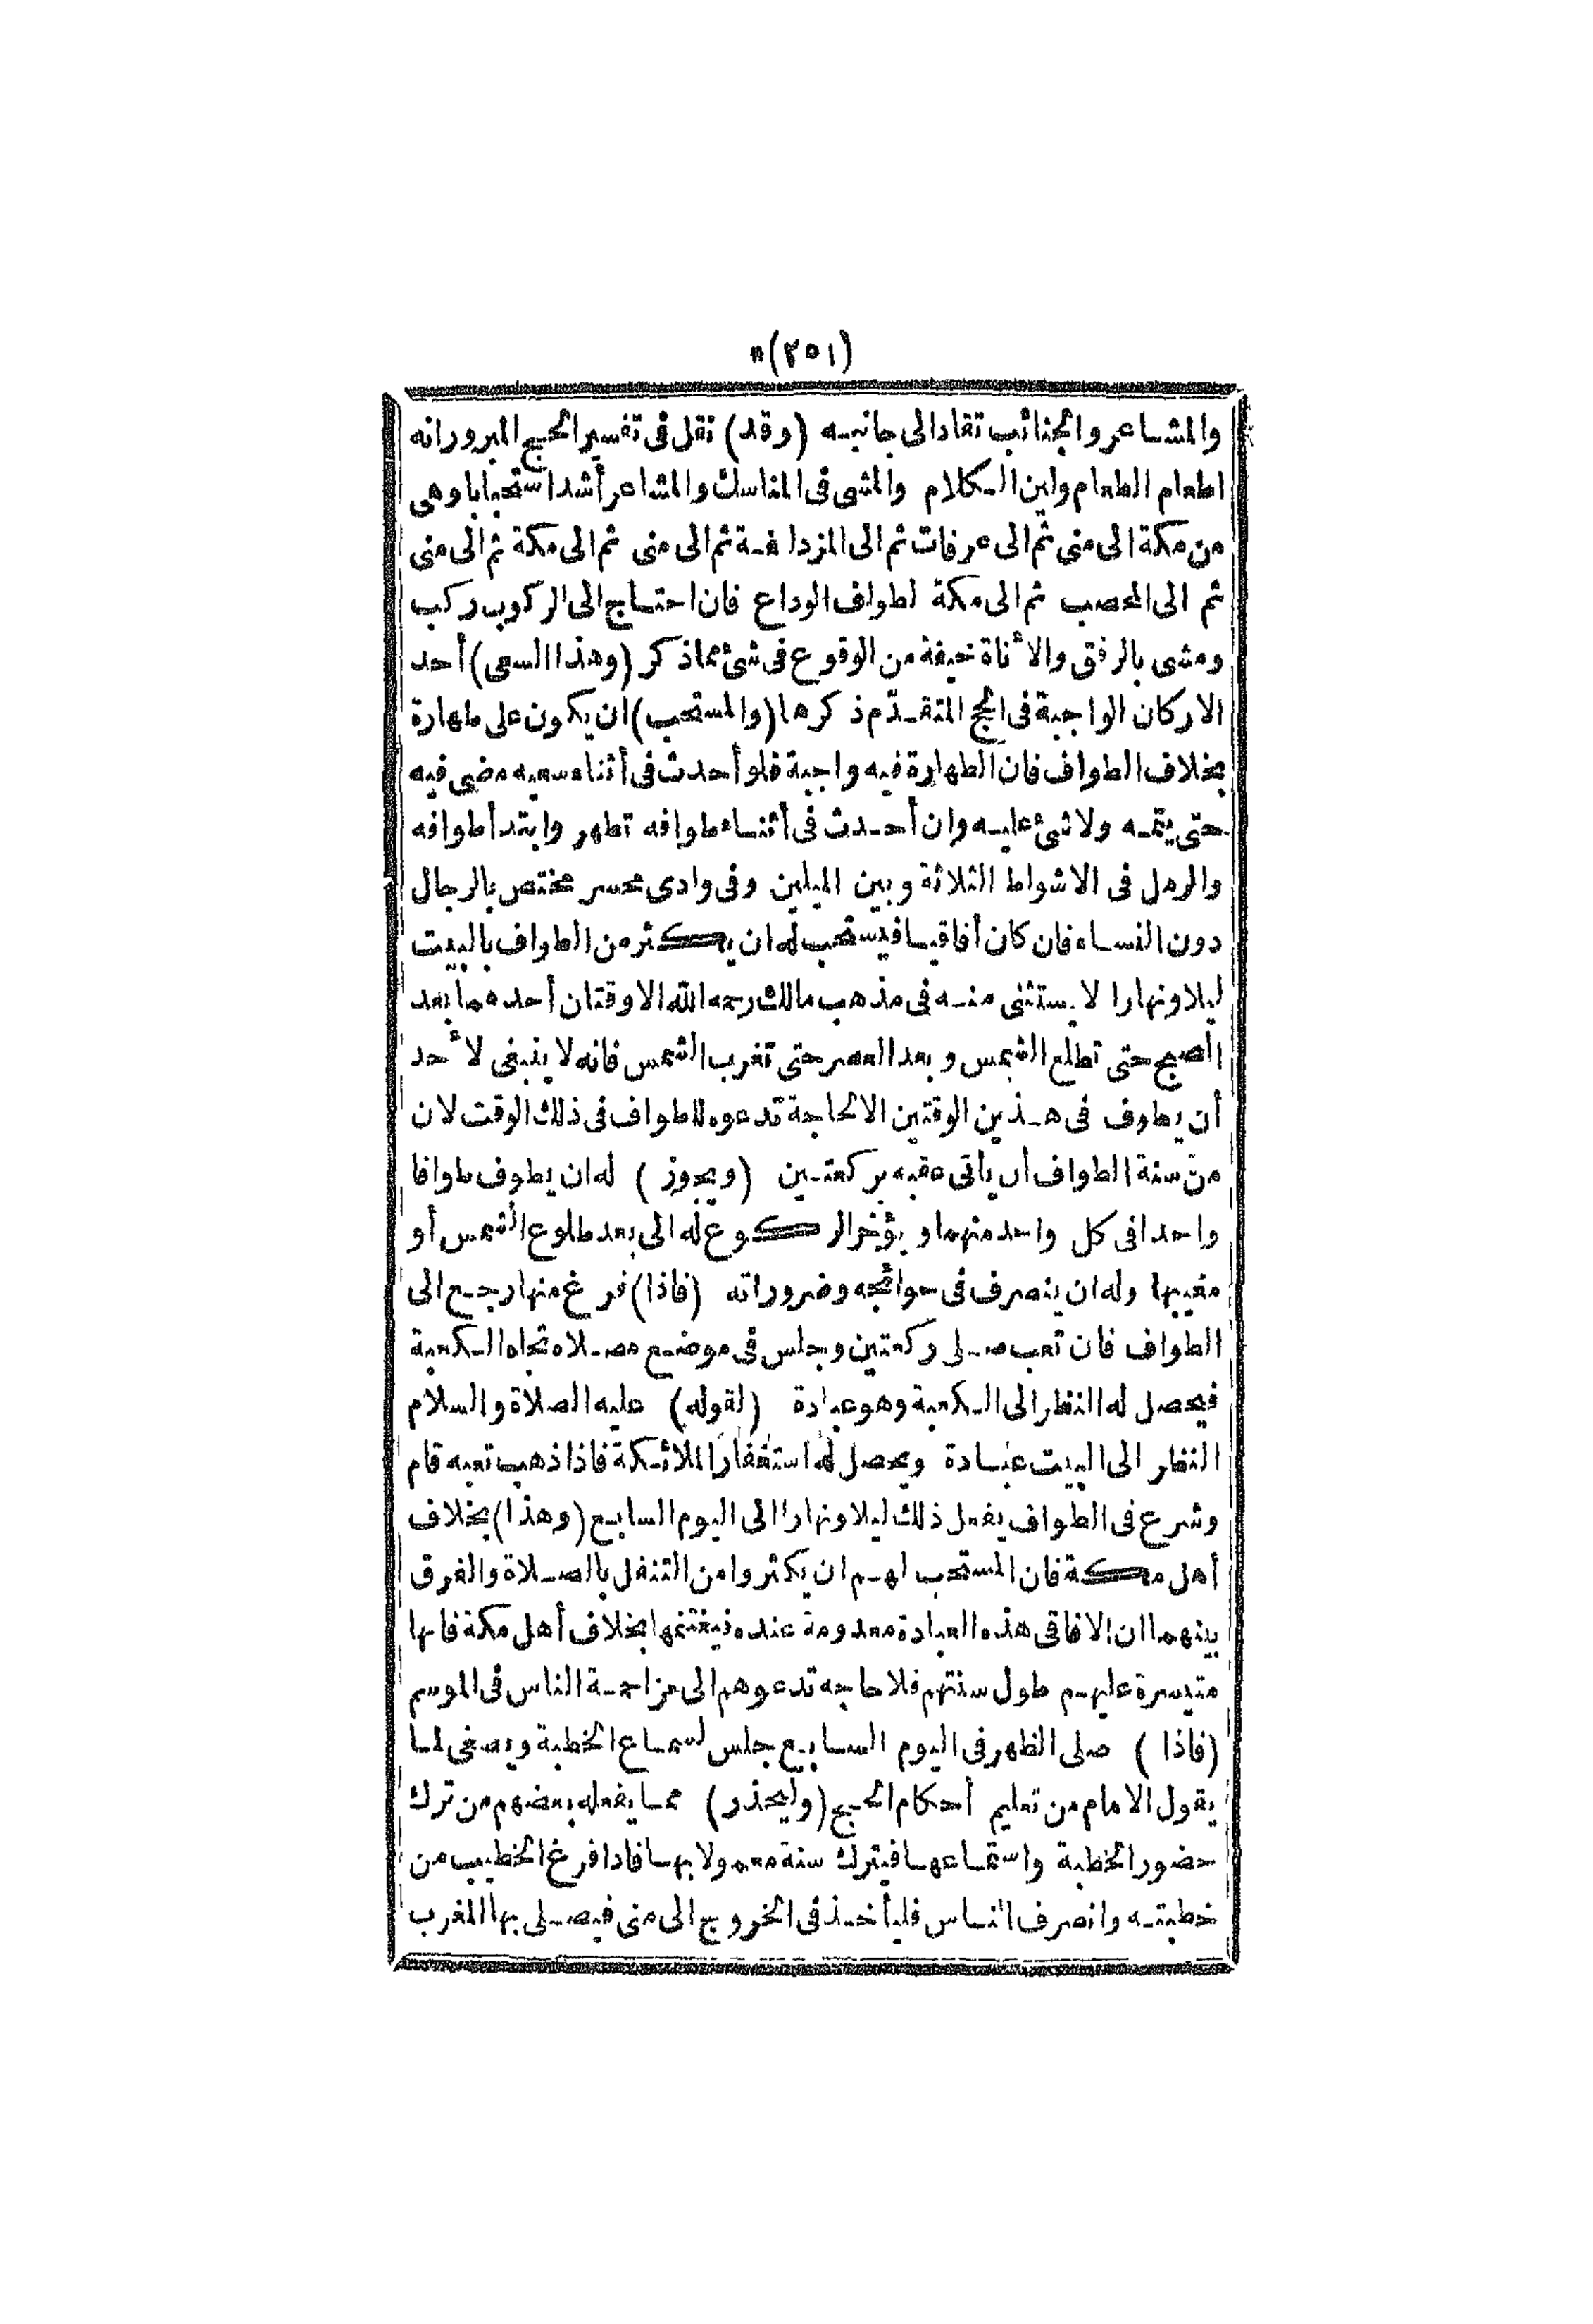 (٢٥١)*
والمشاعر والجنائب تقاد الى جانبه (وقد) نقل فى تفسير الحج المبرور انه
اطعام الطعام ولين الكلام والمشى فى المناسك والمشاعر أشد استحبابا وهى
من مكة الى منى ثم الى عرفات ثم الى المزدلفة ثم الى منى ثم الى مكة ثم الى منى
ثم الى المحصب ثم الى مكة لطواف الوداع فان احتاج الى الركوب ركب
ومشى بالرفق والأناة خيفة من الوقوع فى شئ مماذكر (وهذا السعى) أحد
الاركان الواجبة فى الحج المتقدّم ذكرها (والمستحب) ان يكون على طهارة
بخلاف الطواف فان الطهارة فيه واجبة فلو أحدث فى أثناء سعيه مضى فيه
حتى يتمه ولا شئ عليه وان أحدث فى أثناء طوافه تطهر وابتدأ طوافه
والرمل فى الاشواط الثلاثة وبين الميلين وفى وادى محسر مختص بالرجال
دون النساء فان كان أفاقيا فيستحب له ان يكثر من الطواف بالبيت
ليلا ونهارا لا يستثنى منه فى مذهب مالك رحمه الله الا وقتان أحدهما بعد
الصبح حتى تطلع الشمس وبعد العصر حتى تغرب الشمس فانه لا ينبغى لأحد
أن يطوف فى هذين الوقتين الا لحاجة تدعوه للطواف فى ذلك الوقت لان
من سنة الطواف أن يأتى عقبه بركعتين (ويجوز) له ان يطوف طوافا
واحدا فى كل واحد منهما ويؤخر الركوع له الى بعد طلوع الشمس أو
مغيبها وله ان ينصرف فى حوائجه وضروراته (فاذا) فرغ منها رجع الى
الطواف فان تعب صلى ركعتين وجلس فى موضع مصلاه تجاه الكعبة
فيحصل له النظر الى الكعبة وهو عبادة (لقوله) عليه الصلاة والسلام
النظر الى البيت عبادة ويحصل له استغفار الملائكة فاذا ذهب تعبه قام
وشرع فى الطواف يفعل ذلك ليلا ونهارا الى اليوم السابع (وهذا) بخلاف
أهل مكة فان المستحب لهم ان يكثروا من التنفل بالصلاة والفرق
بينهما ان الافاقى هذه العبادة معدومة عنده فيغتنمها بخلاف أهل مكة فانها
متيسرة عليهم طول سنتهم فلا حاجه تدعوهم الى مزاحمة الناس فى الموسم
(فاذا) صلى الظهر فى اليوم السابع جلس لسماع الخطبة ويصغى لما
يقول الامام من تعليم أحكام الحج (وليحذر) مما يفعله بعضهم من ترك
حضور الخطبة واستماعها فيترك سنة معمولا بها فاذا فرغ الخطيب من
خطبته وانصرف الناس فليأخذ فى الخروج الى منى فيصلى بها المغرب